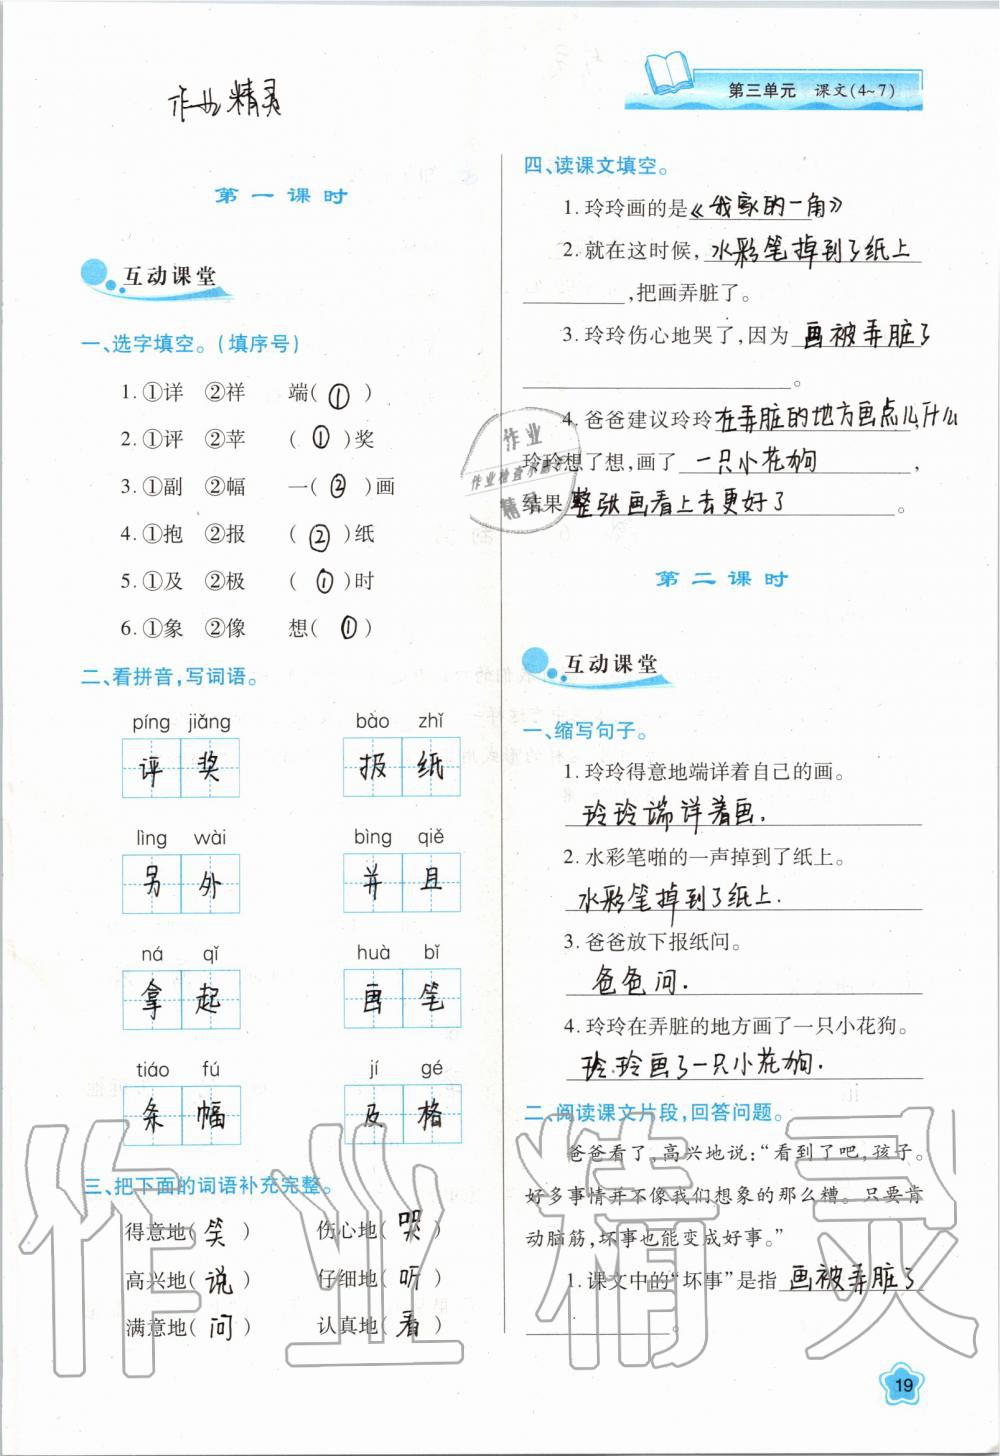 作业精灵
第三单元 课文(4~7)
第一课时
互动课堂
一、选字填空。(填序号)
1.①详 ②祥 端(①)
2.①评 ②苹 (①)奖
3.①副 ②幅 一(②)画
4.①抱 ②报 (②)纸
5.①及 ②极 (①)时
6.①象 ②像 想(①)
二、看拼音,写词语。
píng jiǎng bào zhǐ
评奖 报纸
lìng wài bìng qiě
另外 并且
ná qǐ huà bǐ
拿起 画笔
tiáo fú jí gé
条幅 及格
三、把下面的词语补充完整。
得意地(笑) 伤心地(哭)
高兴地(说) 仔细地(听)
满意地(问) 认真地(看)
四、读课文填空。
1.玲玲画的是《我家的一角》
2.就在这时候,水彩笔掉到了纸上
,把画弄脏了。
3.玲玲伤心地哭了,因为画被弄脏了
。
4.爸爸建议玲玲在弄脏的地方画点儿什么,
玲玲想了想,画了一只小花狗,
结果整张画看上去更好了。
作业
作业检查小助手
精灵
第二课时
互动课堂
一、缩写句子。
1.玲玲得意地端详着自己的画。
玲玲端详着画.
2.水彩笔啪的一声掉到了纸上。
水彩笔掉到了纸上.
3.爸爸放下报纸问。
爸爸问.
4.玲玲在弄脏的地方画了一只小花狗。
玲玲画了一只小花狗.
二、阅读课文片段,回答问题。
爸爸看了,高兴地说:“看到了吧,孩子。
好多事情并不像我们想象的那么糟。只要肯
动脑筋,坏事也能变成好事。”
1.课文中的“坏事”是指画被弄脏了
。
19
作业精灵